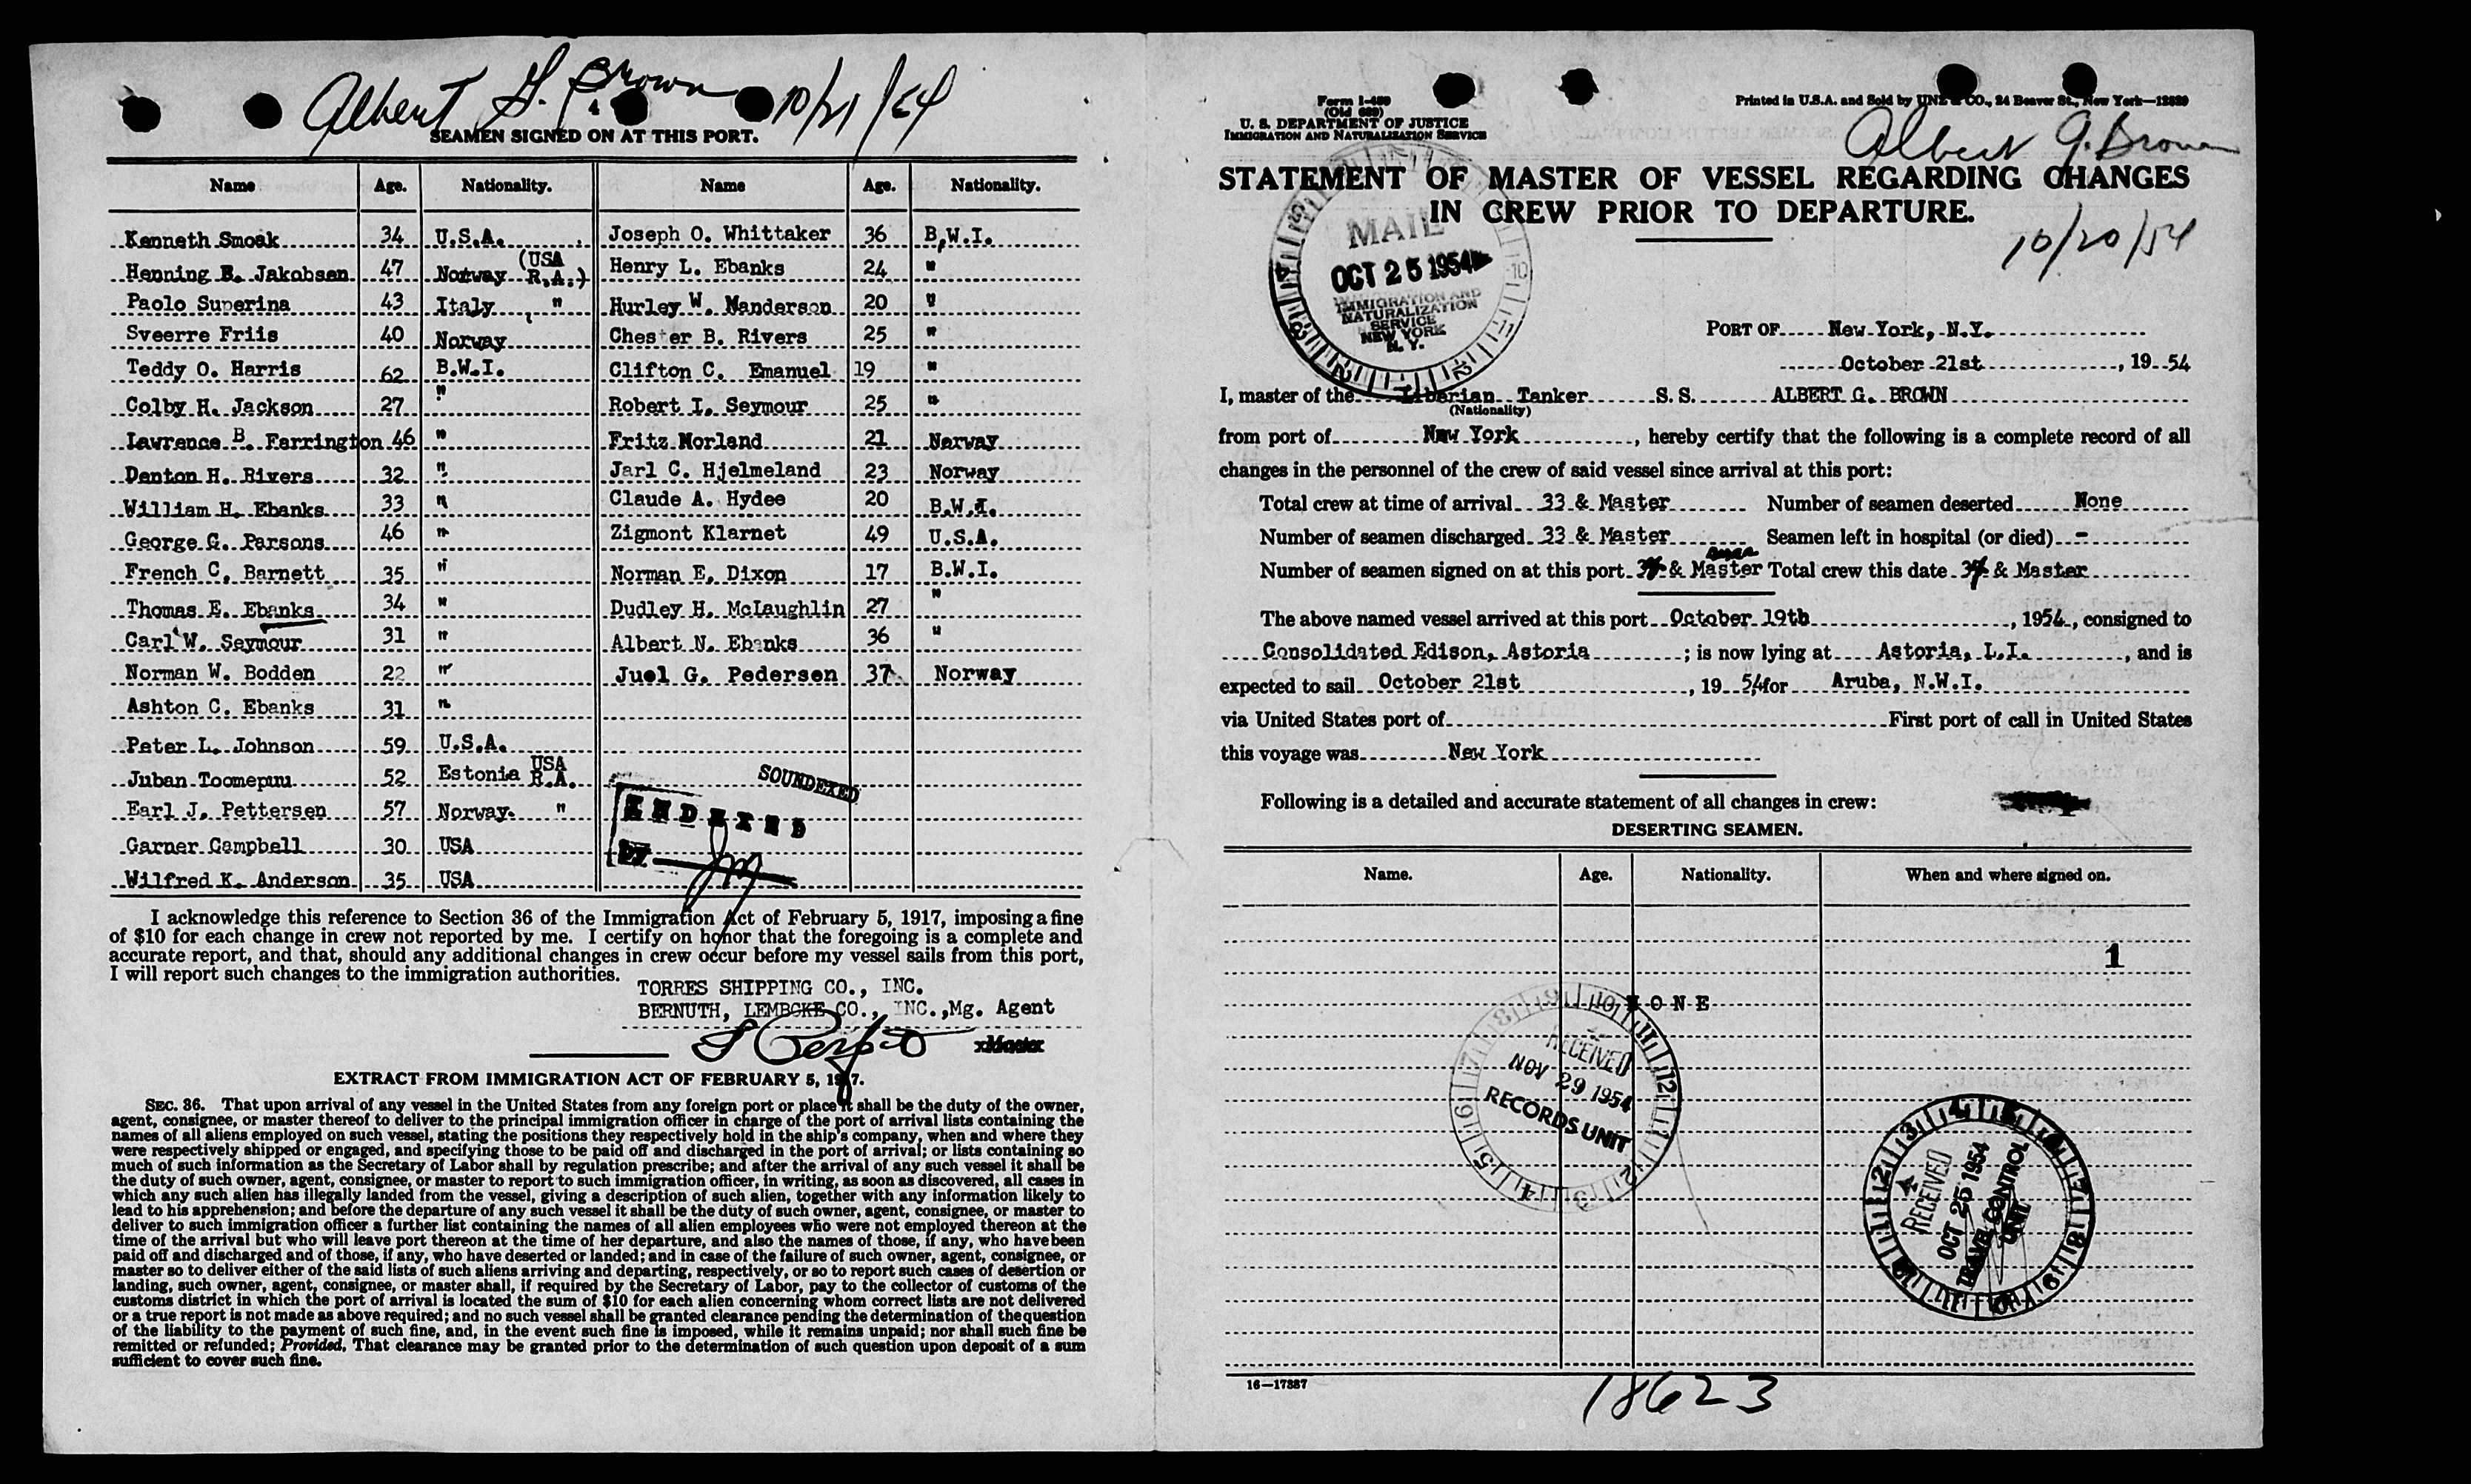 Albert G. Brown 10/21/54
4
SEAMEN SIGNED ON AT THIS PORT.
Name Age. Nationality. Name Age. Nationality.
Kenneth Smoak 34 U.S.A. Joseph O. Whittaker 36 B.W.I.
Henning E. Jakobsen 47 Norway (USA R.A.) Henry L. Ebanks 24 "
Paolo Superina 43 Italy " Hurley W. Manderson 20 "
Sveerre Friis 40 Norway Chester B. Rivers 25 "
Teddy O. Harris 62 B.W.I. Clifton C. Emanuel 19 "
Colby H. Jackson 27 " Robert I. Seymour 25 "
Lawrence B. Farrington 46 " Fritz Norland 21 Norway
Denton H. Rivers 32 " Jarl C. Hjelmeland 23 Norway
William H. Ebanks 33 " Claude A. Hydee 20 B.W.I.
George G. Parsons 46 " Zigmont Klarnet 49 U.S.A.
French C. Barnett 35 " Norman E. Dixon 17 B.W.I.
Thomas E. Ebanks 34 " Dudley H. McLaughlin 27 "
Carl W. Seymour 31 " Albert N. Ebanks 36 "
Norman W. Bodden 22 " Juel G. Pedersen 37 Norway
Ashton C. Ebanks 31 "
Peter L. Johnson 59 U.S.A.
Juban Toomepuu 52 Estonia USA R.A.
Earl J. Pettersen 57 Norway "
Garner Campbell 30 USA
Wilfred K. Anderson 35 USA
SOUNDEXED
INDEXED
BY
I acknowledge this reference to Section 36 of the Immigration Act of February 5, 1917, imposing a fine
of $10 for each change in crew not reported by me. I certify on honor that the foregoing is a complete and
accurate report, and that, should any additional changes in crew occur before my vessel sails from this port,
I will report such changes to the immigration authorities.
TORRES SHIPPING CO., INC.
BERNUTH, LEMBCKE CO., INC.,Mg. Agent
Master
EXTRACT FROM IMMIGRATION ACT OF FEBRUARY 5, 1917.
SEC. 36. That upon arrival of any vessel in the United States from any foreign port or place it shall be the duty of the owner,
agent, consignee, or master thereof to deliver to the principal immigration officer in charge of the port of arrival lists containing the
names of all aliens employed on such vessel, stating the positions they respectively hold in the ship's company, when and where they
were respectively shipped or engaged, and specifying those to be paid off and discharged in the port of arrival; or lists containing so
much of such information as the Secretary of Labor shall by regulation prescribe; and after the arrival of any such vessel it shall be
the duty of such owner, agent, consignee, or master to report to such immigration officer, in writing, as soon as discovered, all cases in
which any such alien has illegally landed from the vessel, giving a description of such alien, together with any information likely to
lead to his apprehension; and before the departure of any such vessel it shall be the duty of such owner, agent, consignee, or master to
deliver to such immigration officer a further list containing the names of all alien employees who were not employed thereon at the
time of the arrival but who will leave port thereon at the time of her departure, and also the names of those, if any, who have been
paid off and discharged and of those, if any, who have deserted or landed; and in case of the failure of such owner, agent, consignee, or
master so to deliver either of the said lists of such aliens arriving and departing, respectively, or so to report such cases of desertion or
landing, such owner, agent, consignee, or master shall, if required by the Secretary of Labor, pay to the collector of customs of the
customs district in which the port of arrival is located the sum of $10 for each alien concerning whom correct lists are not delivered
or a true report is not made as above required; and no such vessel shall be granted clearance pending the determination of the question
of the liability to the payment of such fine, and, in the event such fine is imposed, while it remains unpaid; nor shall such fine be
remitted or refunded; Provided, That clearance may be granted prior to the determination of such question upon deposit of a sum
sufficient to cover such fine.
Form I-489
(Old 689)
U. S. DEPARTMENT OF JUSTICE
IMMIGRATION AND NATURALIZATION SERVICE
Printed in U.S.A. and Sold by UNZ & CO., 24 Beaver St., New York—12529
Albert G. Brown
STATEMENT OF MASTER OF VESSEL REGARDING CHANGES
IN CREW PRIOR TO DEPARTURE.
10/20/54
MAIL
OCT 25 1954
IMMIGRATION AND
NATURALIZATION
SERVICE
NEW YORK
N. Y.
PORT OF New York, N.Y.
October 21st, 19 54
I, master of the Liberian Tanker S.S. ALBERT G. BROWN
(Nationality)
from port of New York, hereby certify that the following is a complete record of all
changes in the personnel of the crew of said vessel since arrival at this port:
Total crew at time of arrival 33 & Master Number of seamen deserted None
Number of seamen discharged 33 & Master Seamen left in hospital (or died) -
Number of seamen signed on at this port & Master Total crew this date & Master
The above named vessel arrived at this port October 19th, 1954, consigned to
Consolidated Edison, Astoria; is now lying at Astoria, L.I., and is
expected to sail October 21st, 19 54 for Aruba, N.W.I.
via United States port of First port of call in United States
this voyage was New York
Following is a detailed and accurate statement of all changes in crew:
DESERTING SEAMEN.
Name. Age. Nationality. When and where signed on.
1
NONE
RECEIVED
NOV 29 1954
RECORDS UNIT
RECEIVED
OCT 25 1954
TRAVEL CONTROL
UNIT
16—17887
18623